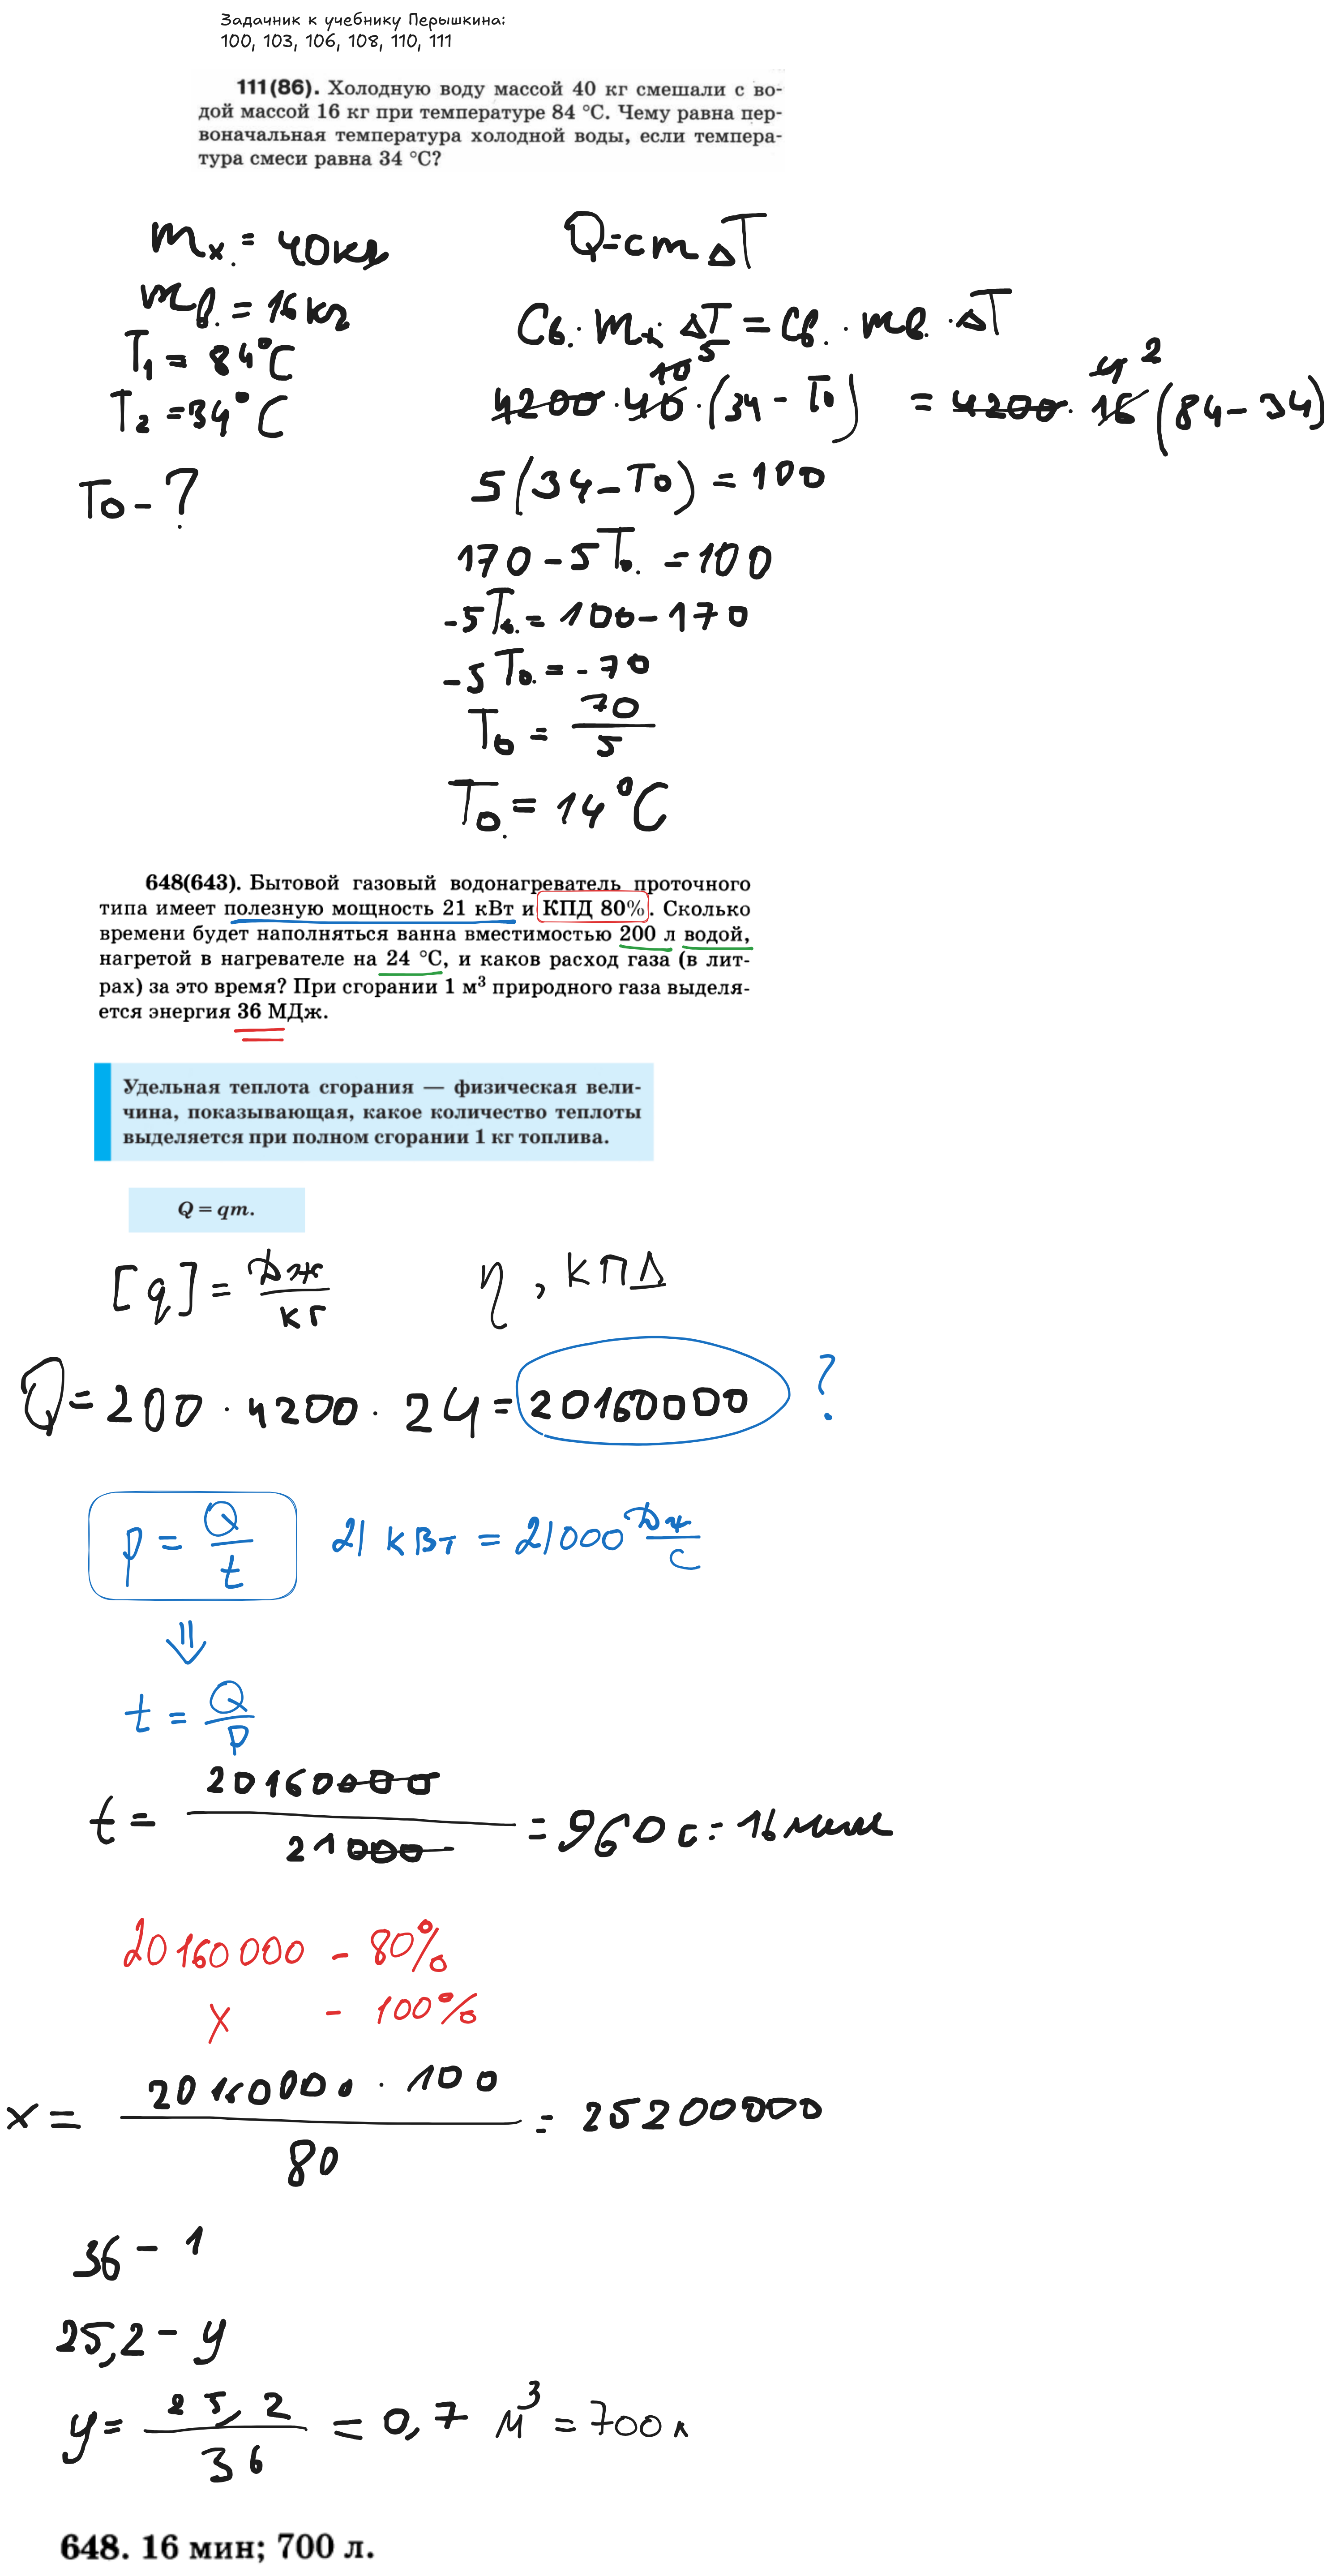 Задачник к учебнику Перышкина:
100, 103, 106, 108, 110, 111
111(86). Холодную воду массой 40 кг смешали с во-
дой массой 16 кг при температуре 84 °С. Чему равна пер-
воначальная температура холодной воды, если темпера-
тура смеси равна 34 °С?
mх. = 40кг
mв. = 16кг
T₁ = 84°C
T₂ = 34°C
T₀ - ?
Q = cmΔT
Cв. · mх. · ΔT = Cв. · mв. · ΔT
10 5 4 2
4200 · 40 · (34 - T₀) = 4200 · 16 (84 - 34)
5(34 - T₀) = 100
170 - 5T₀. = 100
-5T₀. = 100 - 170
-5T₀. = -70
T₀ = 70/5
T₀. = 14°C
648(643). Бытовой газовый водонагреватель проточного
типа имеет полезную мощность 21 кВт и КПД 80%. Сколько
времени будет наполняться ванна вместимостью 200 л водой,
нагретой в нагревателе на 24 °С, и каков расход газа (в лит-
рах) за это время? При сгорании 1 м³ природного газа выделя-
ется энергия 36 МДж.
Удельная теплота сгорания — физическая вели-
чина, показывающая, какое количество теплоты
выделяется при полном сгорании 1 кг топлива.
Q = qm.
[q] = Дж/кг η, КПД
Q = 200 · 4200 · 24 = 20160000 ?
p = Q/t 21 кВт = 21000 Дж/с
⇓
t = Q/p
t = 20160000/21000 = 960 с = 16 мин
20160000 - 80%
x - 100%
x = 20160000 · 100/80 = 25200000
36 - 1
25,2 - y
y = 25,2/36 = 0,7 м³ = 700 л
648. 16 мин; 700 л.